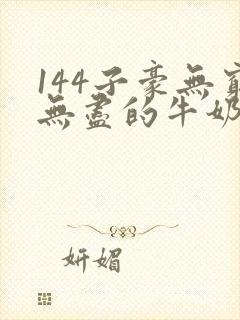 144子豪無窮
無盡的牛奶
妍媚